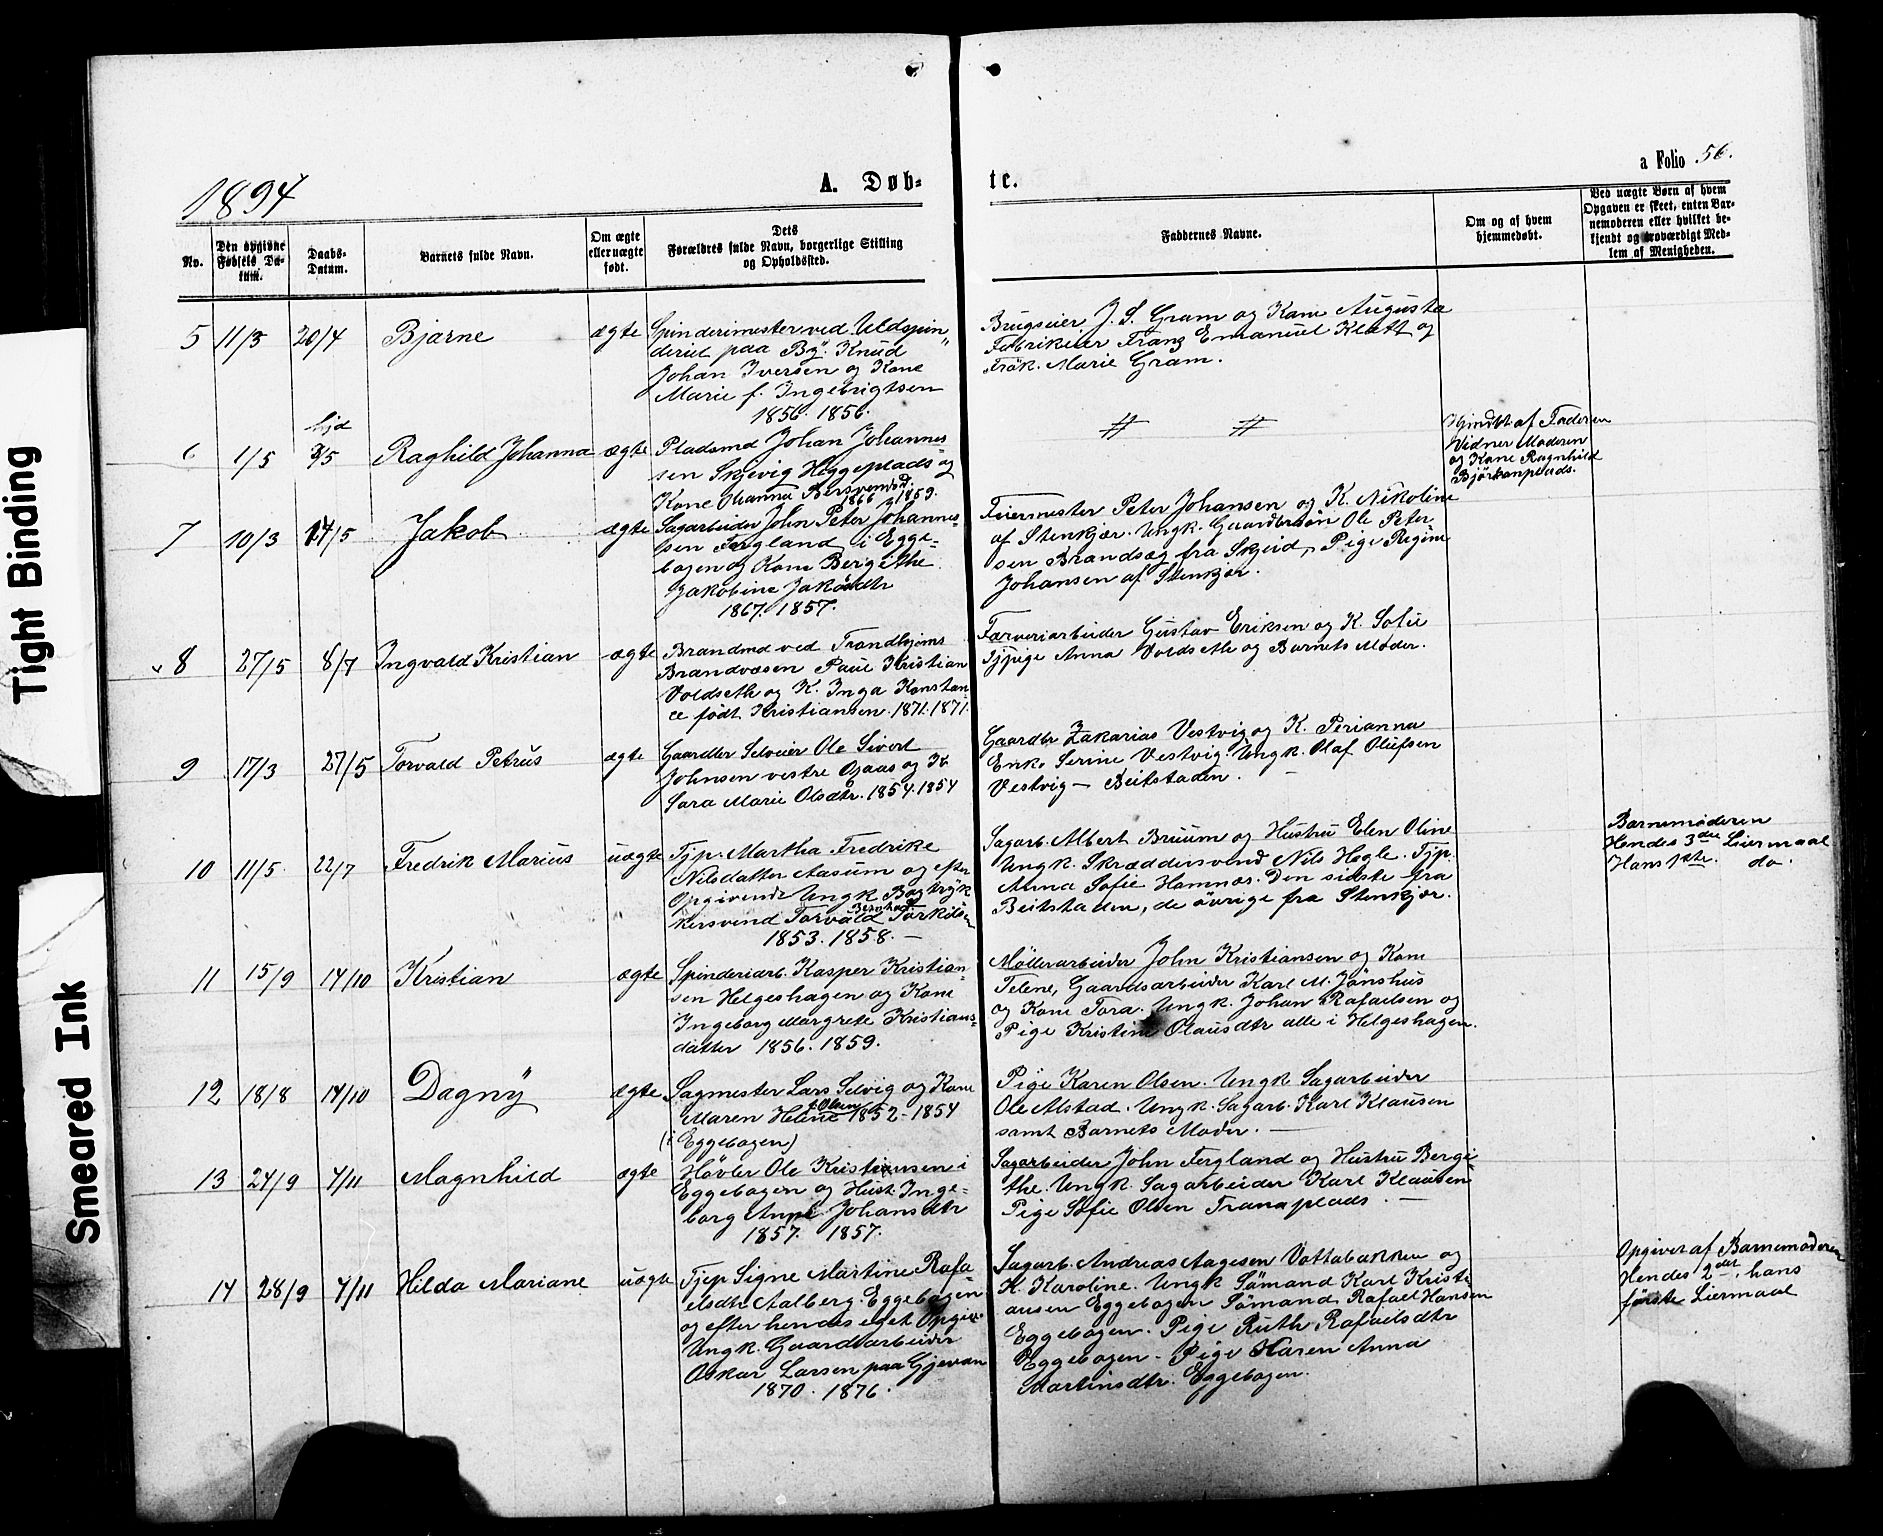 Tight Binding
Smeared Ink
1894
A. Døb-
te.
a Folio 56.
No.
Den opgivne
Fødsels Da-
tum.
Daabs-
Datum.
Barnets fulde Navn.
Om ægte
eller uægte
født.
Dets
Forældres fulde Navn, borgerlige Stilling
og Opholdssted.
Faddernes Navne.
Om og af hvem
hjemmedøbt.
Ved uægte Børn af hvem
Opgaven er skeet, enten Bar-
nemoderen eller hvilket be-
kjendt og troværdigt Med-
lem af Menigheden.
5 11/3 20/4 Bjarne ægte Spinderimester ved Uldspin-
deriet paa By: Knud
Johan Iversen og Kone
Marie f. Ingebrigtsen
1856. 1856.
Brugseier J. S. Gram og Kone Augusta
Fabrikeier Franz Emanuel Klatt og
Frøk. Marie Gram.
6 1/5 hjd 3/5 Raghild Johanna ægte Pladsmd Johan Johannes-
sen Skjevig Heggeplads og
Kone Bersvendsd.
1866 1859.
# #
af Faderen
Vidner Moderen
og Kone Ragnhild
7 10/3 14/5 Jakob ægte Sagarbeider John Peter Johannes-
sen Fergland i Egge-
bogen og Kone Bergithe
Jakobine Jakobsdtr
1867. 1857.
Feiermester Peter Johansen og K. Nikoline
af Stenkjær. Ungk. Gaardbrsøn Ole Peter
sen Brandsæg fra Skjeid, Pige Regine
Johansen af Stenkjær.
8 27/5 8/7 Ingvald Kristian ægte Brandmd ved Trondhjems
Brandvæsen Paul Kristian
Voldseth og K. Inga Konstan-
ce født Kristiansen. 1871. 1871.
Farveriarbeider Gustav Eriksen og K. Sofie
Tjpige Anna Voldseth og Barnets Moder.
9 17/3 27/5 Torvald Petrus ægte Gaardbr Selveier Ole Sivert
Johnsen vestre og K.
Sara Marie Olsdtr. 1854. 1854
Gaardbr Zakarias Vestvig og K. Perianna
Enke Serine Vestvig. Ungk. Olaf Olufsen
Vestvig — Beitstaden. —
10 11/5 22/7 Fredrik Marius uægte Tjp. Martha Fredrike
Nilsdatter Aasum og efter
Opgivende Ungk Bogtryk
kersvend Torvald Bernhard Torkilsen
1853. 1858. —
Sagarb. Albert Bruum og Hustru Elen Oline
Ungk. Skræddersvend Nils Hegle. Tjp.
Anna Sofie Hamnes. Den sidste fra
Beitstaden, de øvrige fra Stenkjær.
Barnemoderen
Hendes 3die Leiermaal
Hans 1ste. do.
11 15/9 14/10 Kristian ægte Spinderiarb. Kasper Kristian-
sen Helgeshagen og Kone
Ingeborg Margrete Kristians-
datter 1856. 1859.
Møllerarbeider John Kristiansen og Kone
Telene, Gaardsarbeider Karl M. Jønshus
og Kone Tora. Ungk. Johan Rafaelsen og
Pige Kristine Olausdtr alle i Helgeshagen.
12 18/8 14/10 Dagny ægte Sagmester Lars Selvig og Kone
Maren Helene f. Olsen 1852 - 1854
(i Eggebogen)
Pige Karen Olsen. Ungk Sagarbeider
Ole Alstad. Ungk. Sagarb. Karl Klausen
samt Barnets Moder. —
13 24/9 4/11 Magnhild ægte Høvler Ole Kristiansen i
Eggebogen og Hust. Inge-
borg Anne Johansdtr
1857. 1857.
Sagarbeider John Fergland og Hustru Bergi
the. Ungk. Sagarbeider Karl Klausen
Pige Sofie Olsen Tranaplads. —
14 28/9 4/11 Hilda Mariane uægte Tjep Signe Martine Rafa-
elsdtr Aalberg. Eggebogen
og efter hendes eget Opgive
Ungk. Gaardsarbeider
Oskar Larsen paa Gjevran
1870. 1876.
Sagarb. Andreas Aagesen Vattabakken og
K. Karoline. Ungk Sømand Karl Kristi
ansen Eggebogen Sømand Rafael Hansen
Eggebogen. Pige Ruth Rafaelsdtr
Eggebogen. Pige Karen Anna
Martinsdtr. Eggebogen.
Opgivet af Barnemoderen
Hendes 2det, hans
første Leiermaal